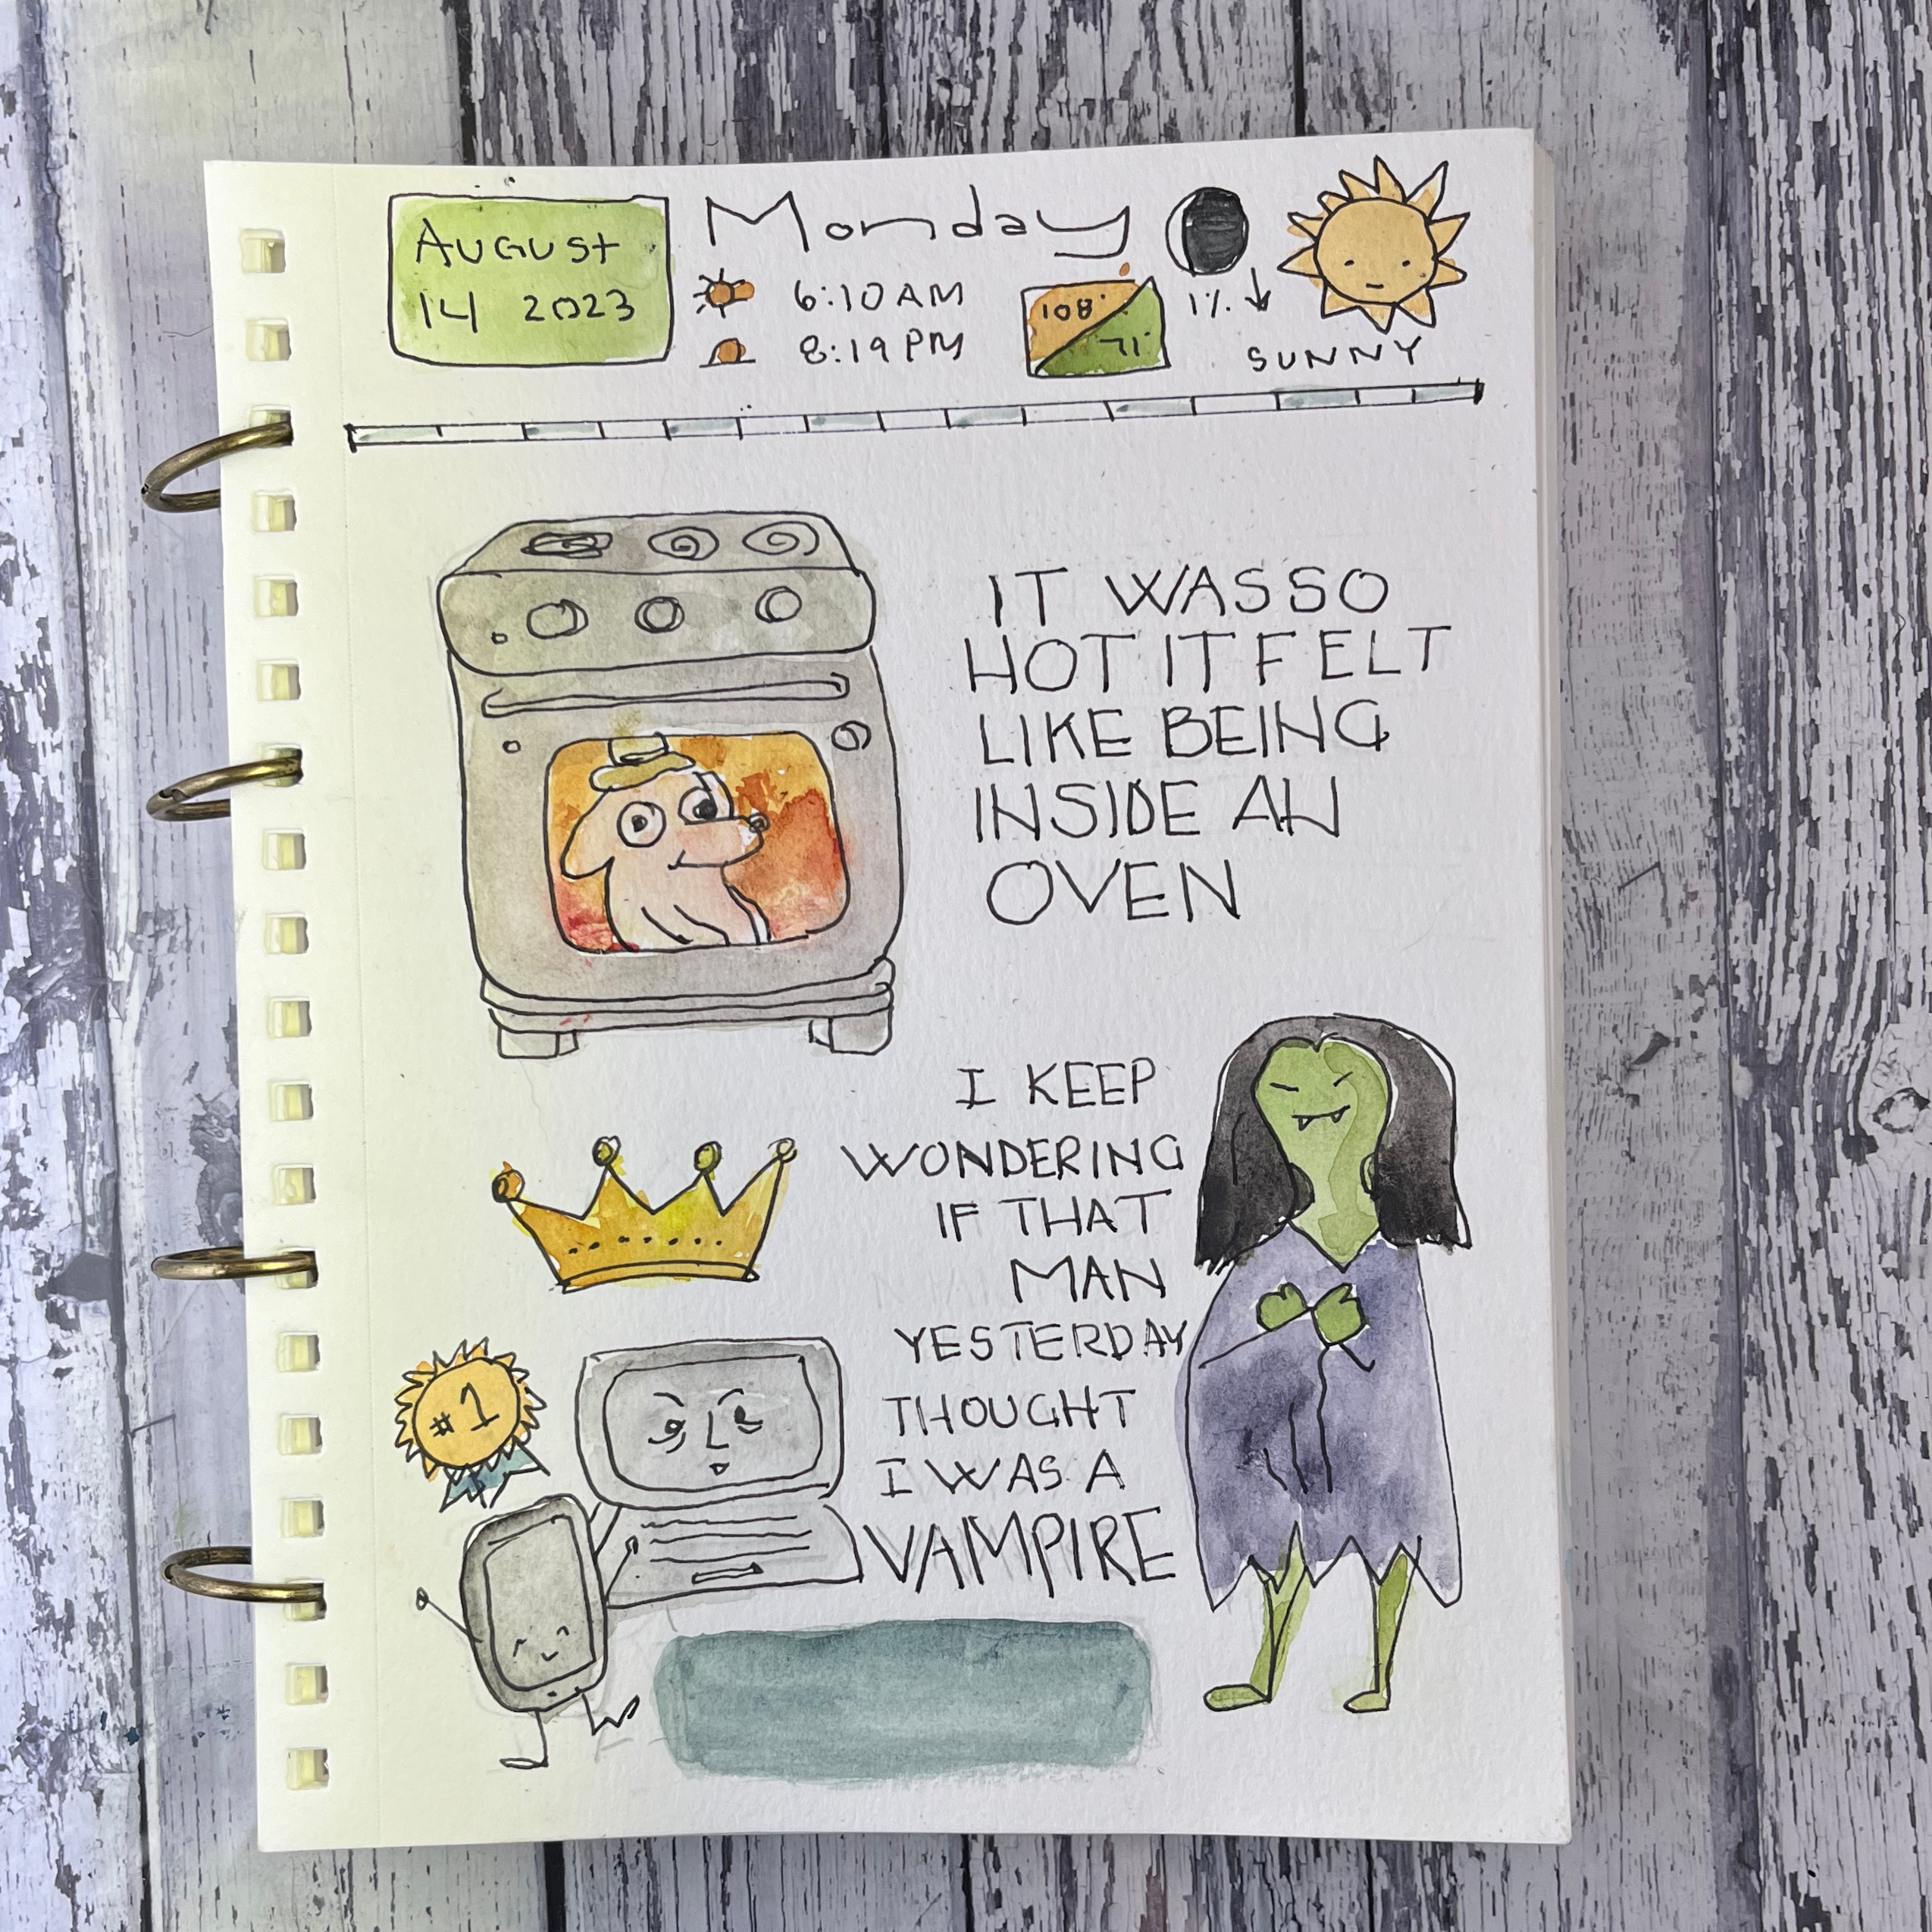 AUGUST
14 2023
Monday
6:10 AM
8:19 PM
108°
71°
1%
SUNNY
IT WAS SO
HOT IT FELT
LIKE BEING
INSIDE AN
OVEN
I KEEP
WONDERING
IF THAT
MAN
YESTERDAY
THOUGHT
I WAS A
VAMPIRE
#1